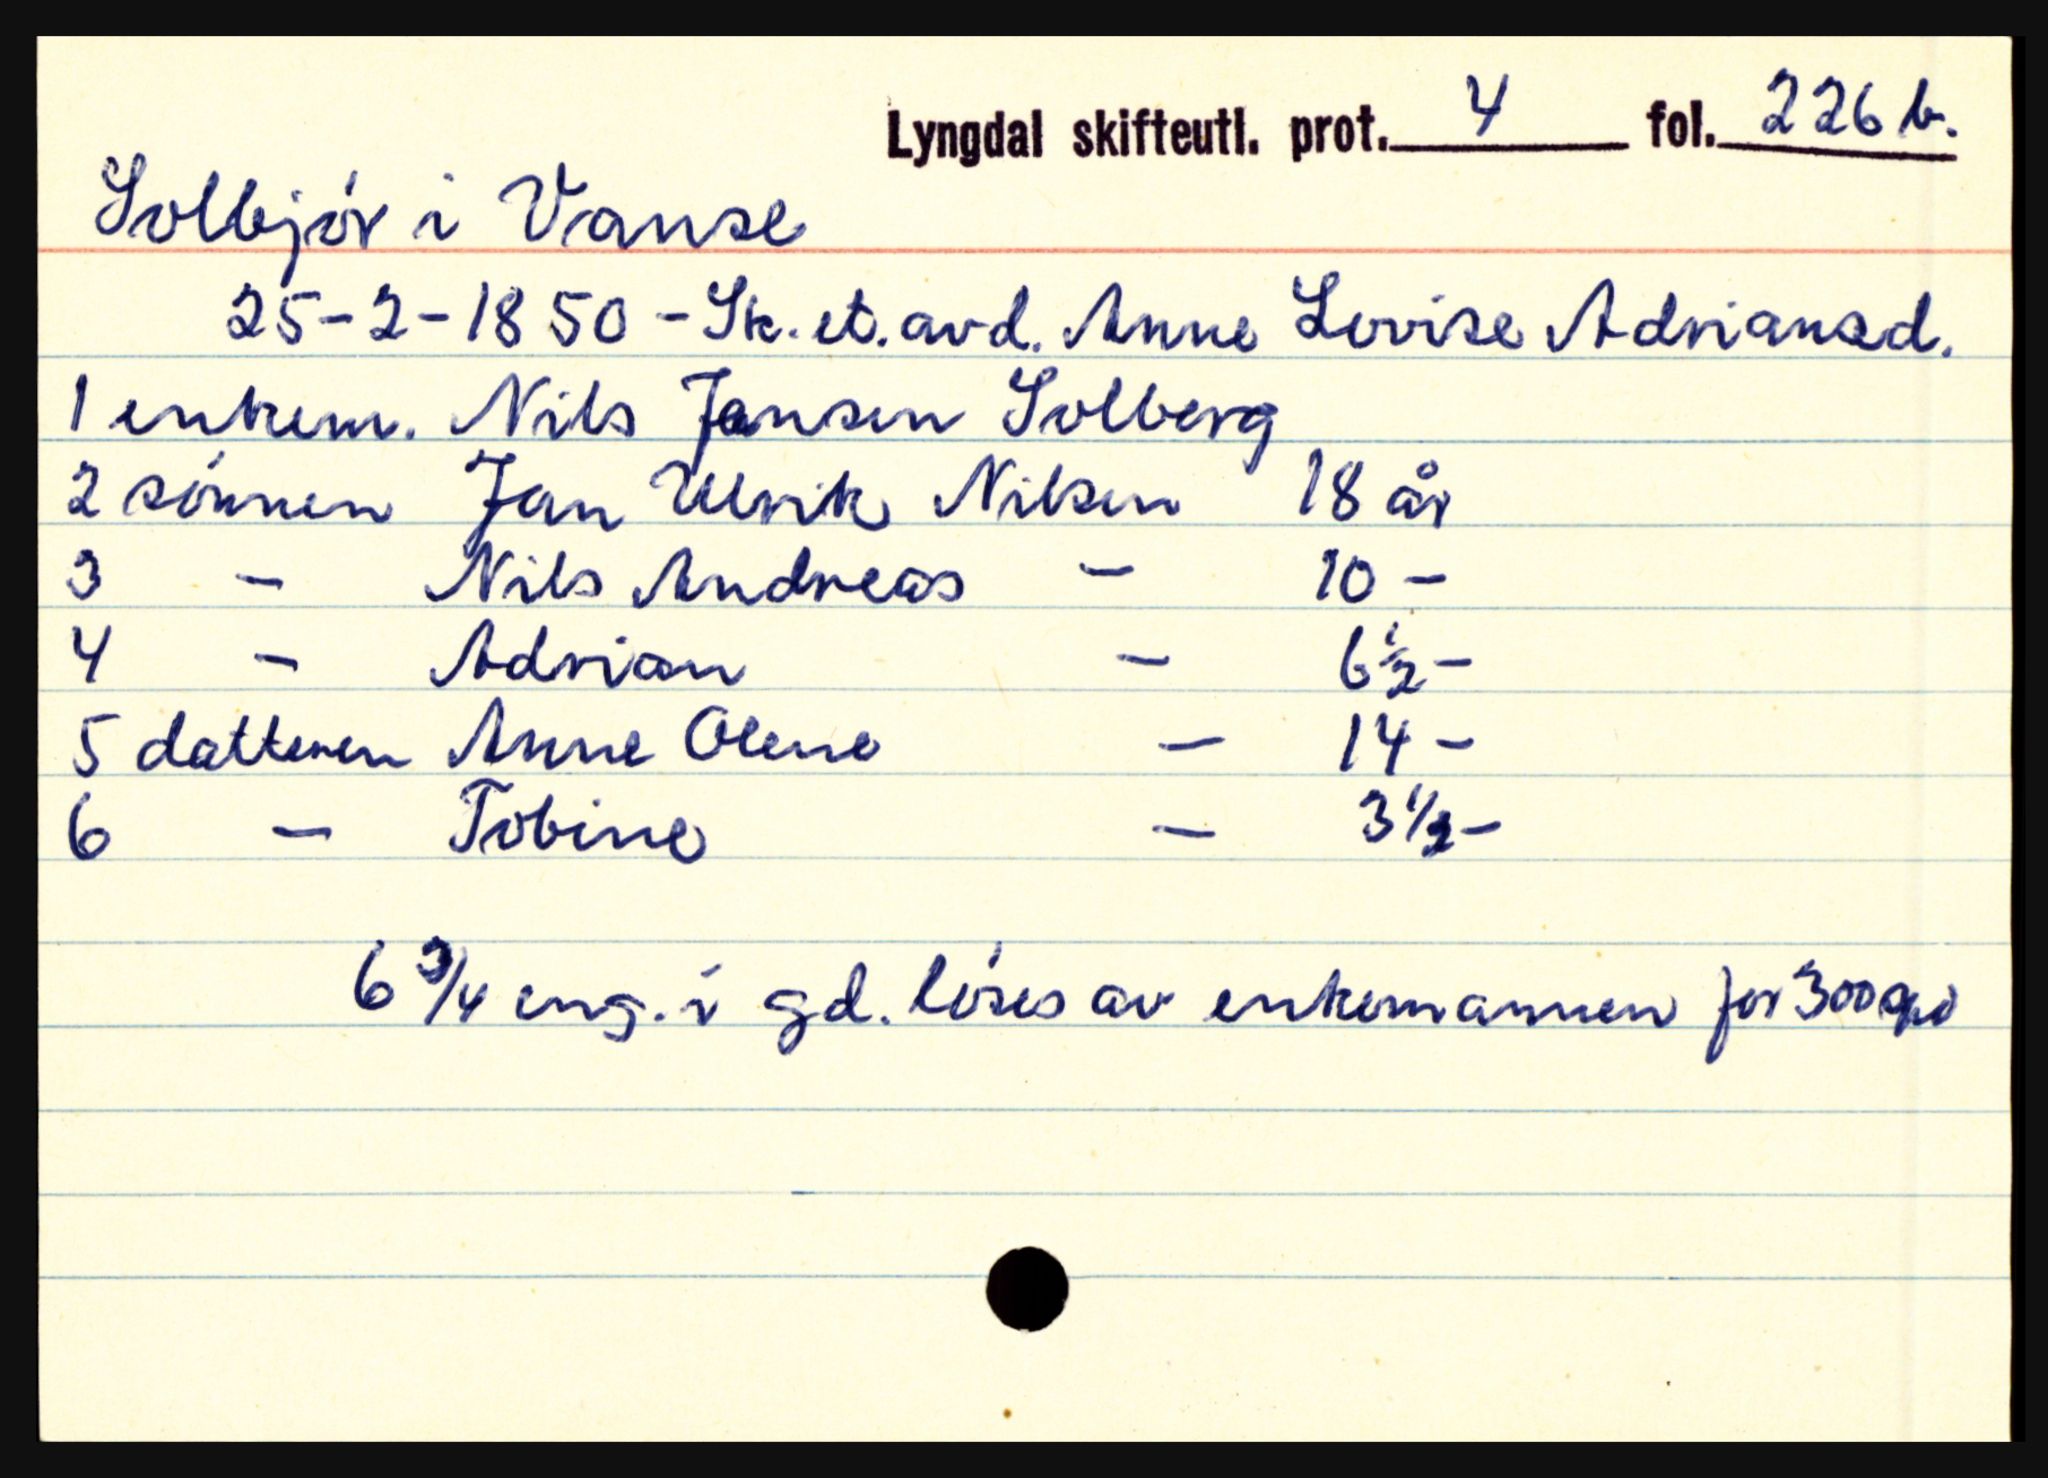 Lyngdal skifteutl. prot. 4 fol. 226 b.
Solbjór i Vanse
25-2-1850 - Sk. et. avd. Anne Lovise Adriansd.
1 enkem. Nils Jansen Solberg
2 sónnen Jan Ulrik Nilsen 18 år
3 - Nils Andreas - 10 -
4 - Adrian - 6 1/2 -
5 datteren Anne Olene - 14 -
6 - Tobine - 3 1/2 -
6 3/4 eng. i gd. lóses av enkemannen for 300 spd